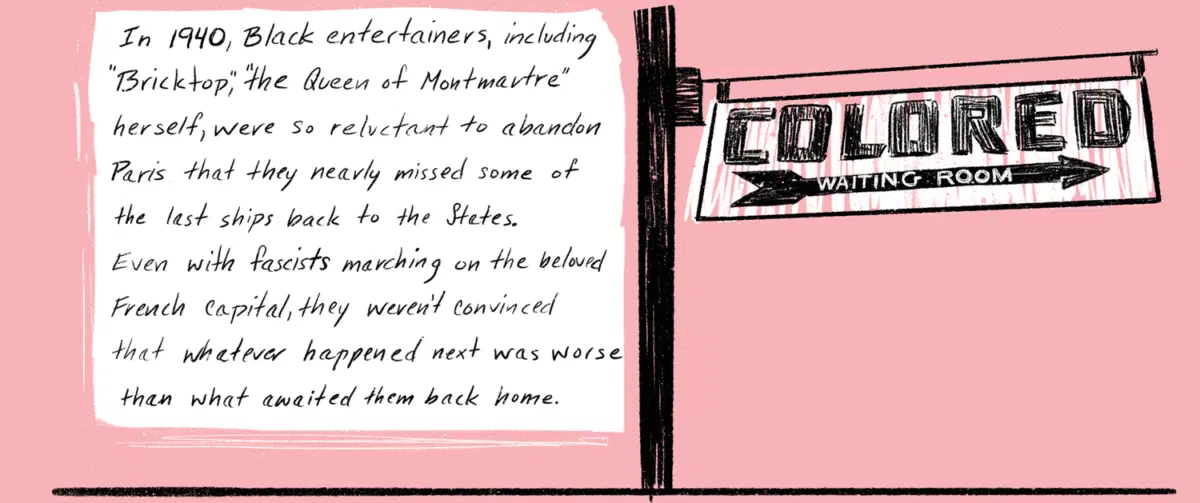 In 1940, Black entertainers, including
"Bricktop," "the Queen of Montmartre"
herself, were so reluctant to abandon
Paris that they nearly missed some of
the last ships back to the States.
Even with fascists marching on the beloved
French Capital, they weren't convinced
that whatever happened next was worse
than what awaited them back home.
COLORED
WAITING ROOM